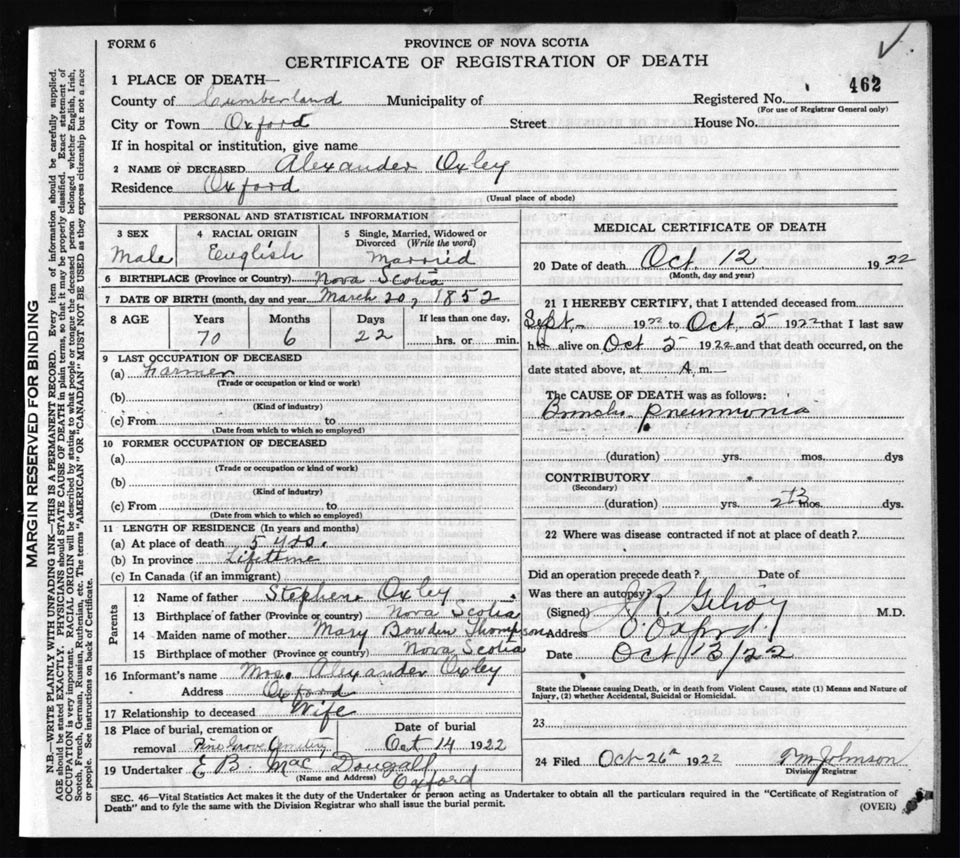 FORM 6
PROVINCE OF NOVA SCOTIA
CERTIFICATE OF REGISTRATION OF DEATH
1 PLACE OF DEATH—
462
County of Cumberland Municipality of Registered No.
(For use of Registrar General only)
City or Town Oxford Street House No.
If in hospital or institution, give name
2 NAME OF DECEASED Alexander Oxley
Residence Oxford
(Usual place of abode)
PERSONAL AND STATISTICAL INFORMATION
3 SEX
Male
4 RACIAL ORIGIN
English
5 Single, Married, Widowed or
Divorced (Write the word)
Married
6 BIRTHPLACE (Province or Country) Nova Scotia
7 DATE OF BIRTH (month, day and year) March 20, 1852
8 AGE Years Months Days If less than one day,
70 6 22 hrs. or min.
9 LAST OCCUPATION OF DECEASED
(a) Farmer
(Trade or occupation or kind or work)
(b)
(Kind of industry)
(c) From to
(Date from which to which so employed)
10 FORMER OCCUPATION OF DECEASED
(a)
(Trade or occupation or kind of work)
(b)
(Kind of industry)
(c) From to
(Date from which to which so employed)
11 LENGTH OF RESIDENCE (In years and months)
(a) At place of death 5 yrs.
(b) In province Lifetime
(c) In Canada (if an immigrant)
Parents
12 Name of father Stephen Oxley
13 Birthplace of father (Province or country) Nova Scotia
14 Maiden name of mother Mary Bowden Thompson
15 Birthplace of mother (Province or country) Nova Scotia
16 Informant's name Mrs. Alexander Oxley
Address Oxford
17 Relationship to deceased Wife
18 Place of burial, cremation or Date of burial
removal Pine Grove Cemetery Oct 14 1922
19 Undertaker E B. Mac Dougall
(Name and Address) Oxford
MEDICAL CERTIFICATE OF DEATH
20 Date of death Oct. 12 1922
(Month, day and year)
21 I HEREBY CERTIFY, that I attended deceased from
Sept. 1922 to Oct. 5 1922 that I last saw
h alive on Oct 5 1922 and that death occurred, on the
date stated above, at A m.
The CAUSE OF DEATH was as follows:
Broncho pneumonia
(duration) yrs. mos. dys
CONTRIBUTORY
(Secondary)
(duration) yrs. mos. dys.
22 Where was disease contracted if not at place of death?
Did an operation precede death? Date of
Was there an autopsy?
(Signed) R. Gilroy M.D.
Address Oxford
Date Oct 13/22
State the Disease causing Death, or in death from Violent Causes, state (1) Means and Nature of
Injury, (2) whether Accidental, Suicidal or Homicidal.
23
24 Filed Oct 26th 1922 Johnson
Division Registrar
SEC. 46—Vital Statistics Act makes it the duty of the Undertaker or person acting as Undertaker to obtain all the particulars required in the "Certificate of Registration of
Death" and to fyle the same with the Division Registrar who shall issue the burial permit.
(OVER)
MARGIN RESERVED FOR BINDING
N.B.—WRITE PLAINLY WITH UNFADING INK—THIS IS A PERMANENT RECORD. Every item of information should be carefully supplied.
AGE should be stated EXACTLY. PHYSICIANS should STATE CAUSE OF DEATH in plain terms, so that it may be properly classified. Exact statement of
OCCUPATION is very important. RACIAL ORIGIN will be described by stating to what people or tongue the deceased person belonged, whether English, Irish,
Scotch, French, German, Russian, Ruthenian, etc. The terms "AMERICAN" OR "CANADIAN" MUST NOT BE USED as they express citizenship but not a race
or people. See instructions on back of Certificate.